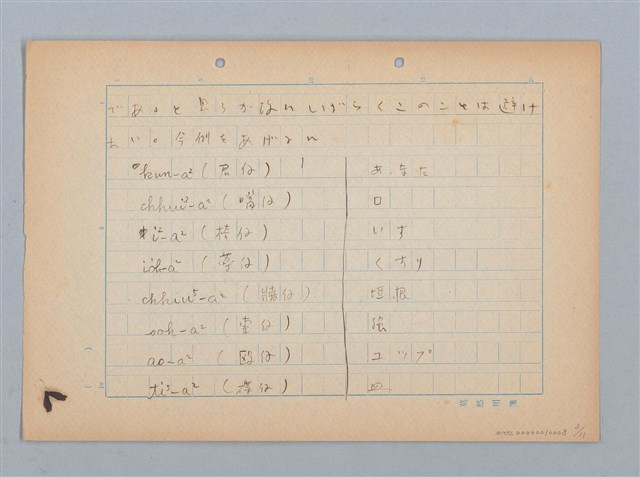 であると思うが故にしばらくこのことは避け
たい。今例をあげれば
kun-a² (君仔) あなた
chhui²-a² (嘴仔) 口
i²-a² (椅仔) いす
ioh-a² (薬仔) くすり
chhiu⁵-a² (牆仔) 垣根
soh-a² (索仔) 縄
ao-a² (甌仔) コップ
ti²-a² (碟仔) 皿